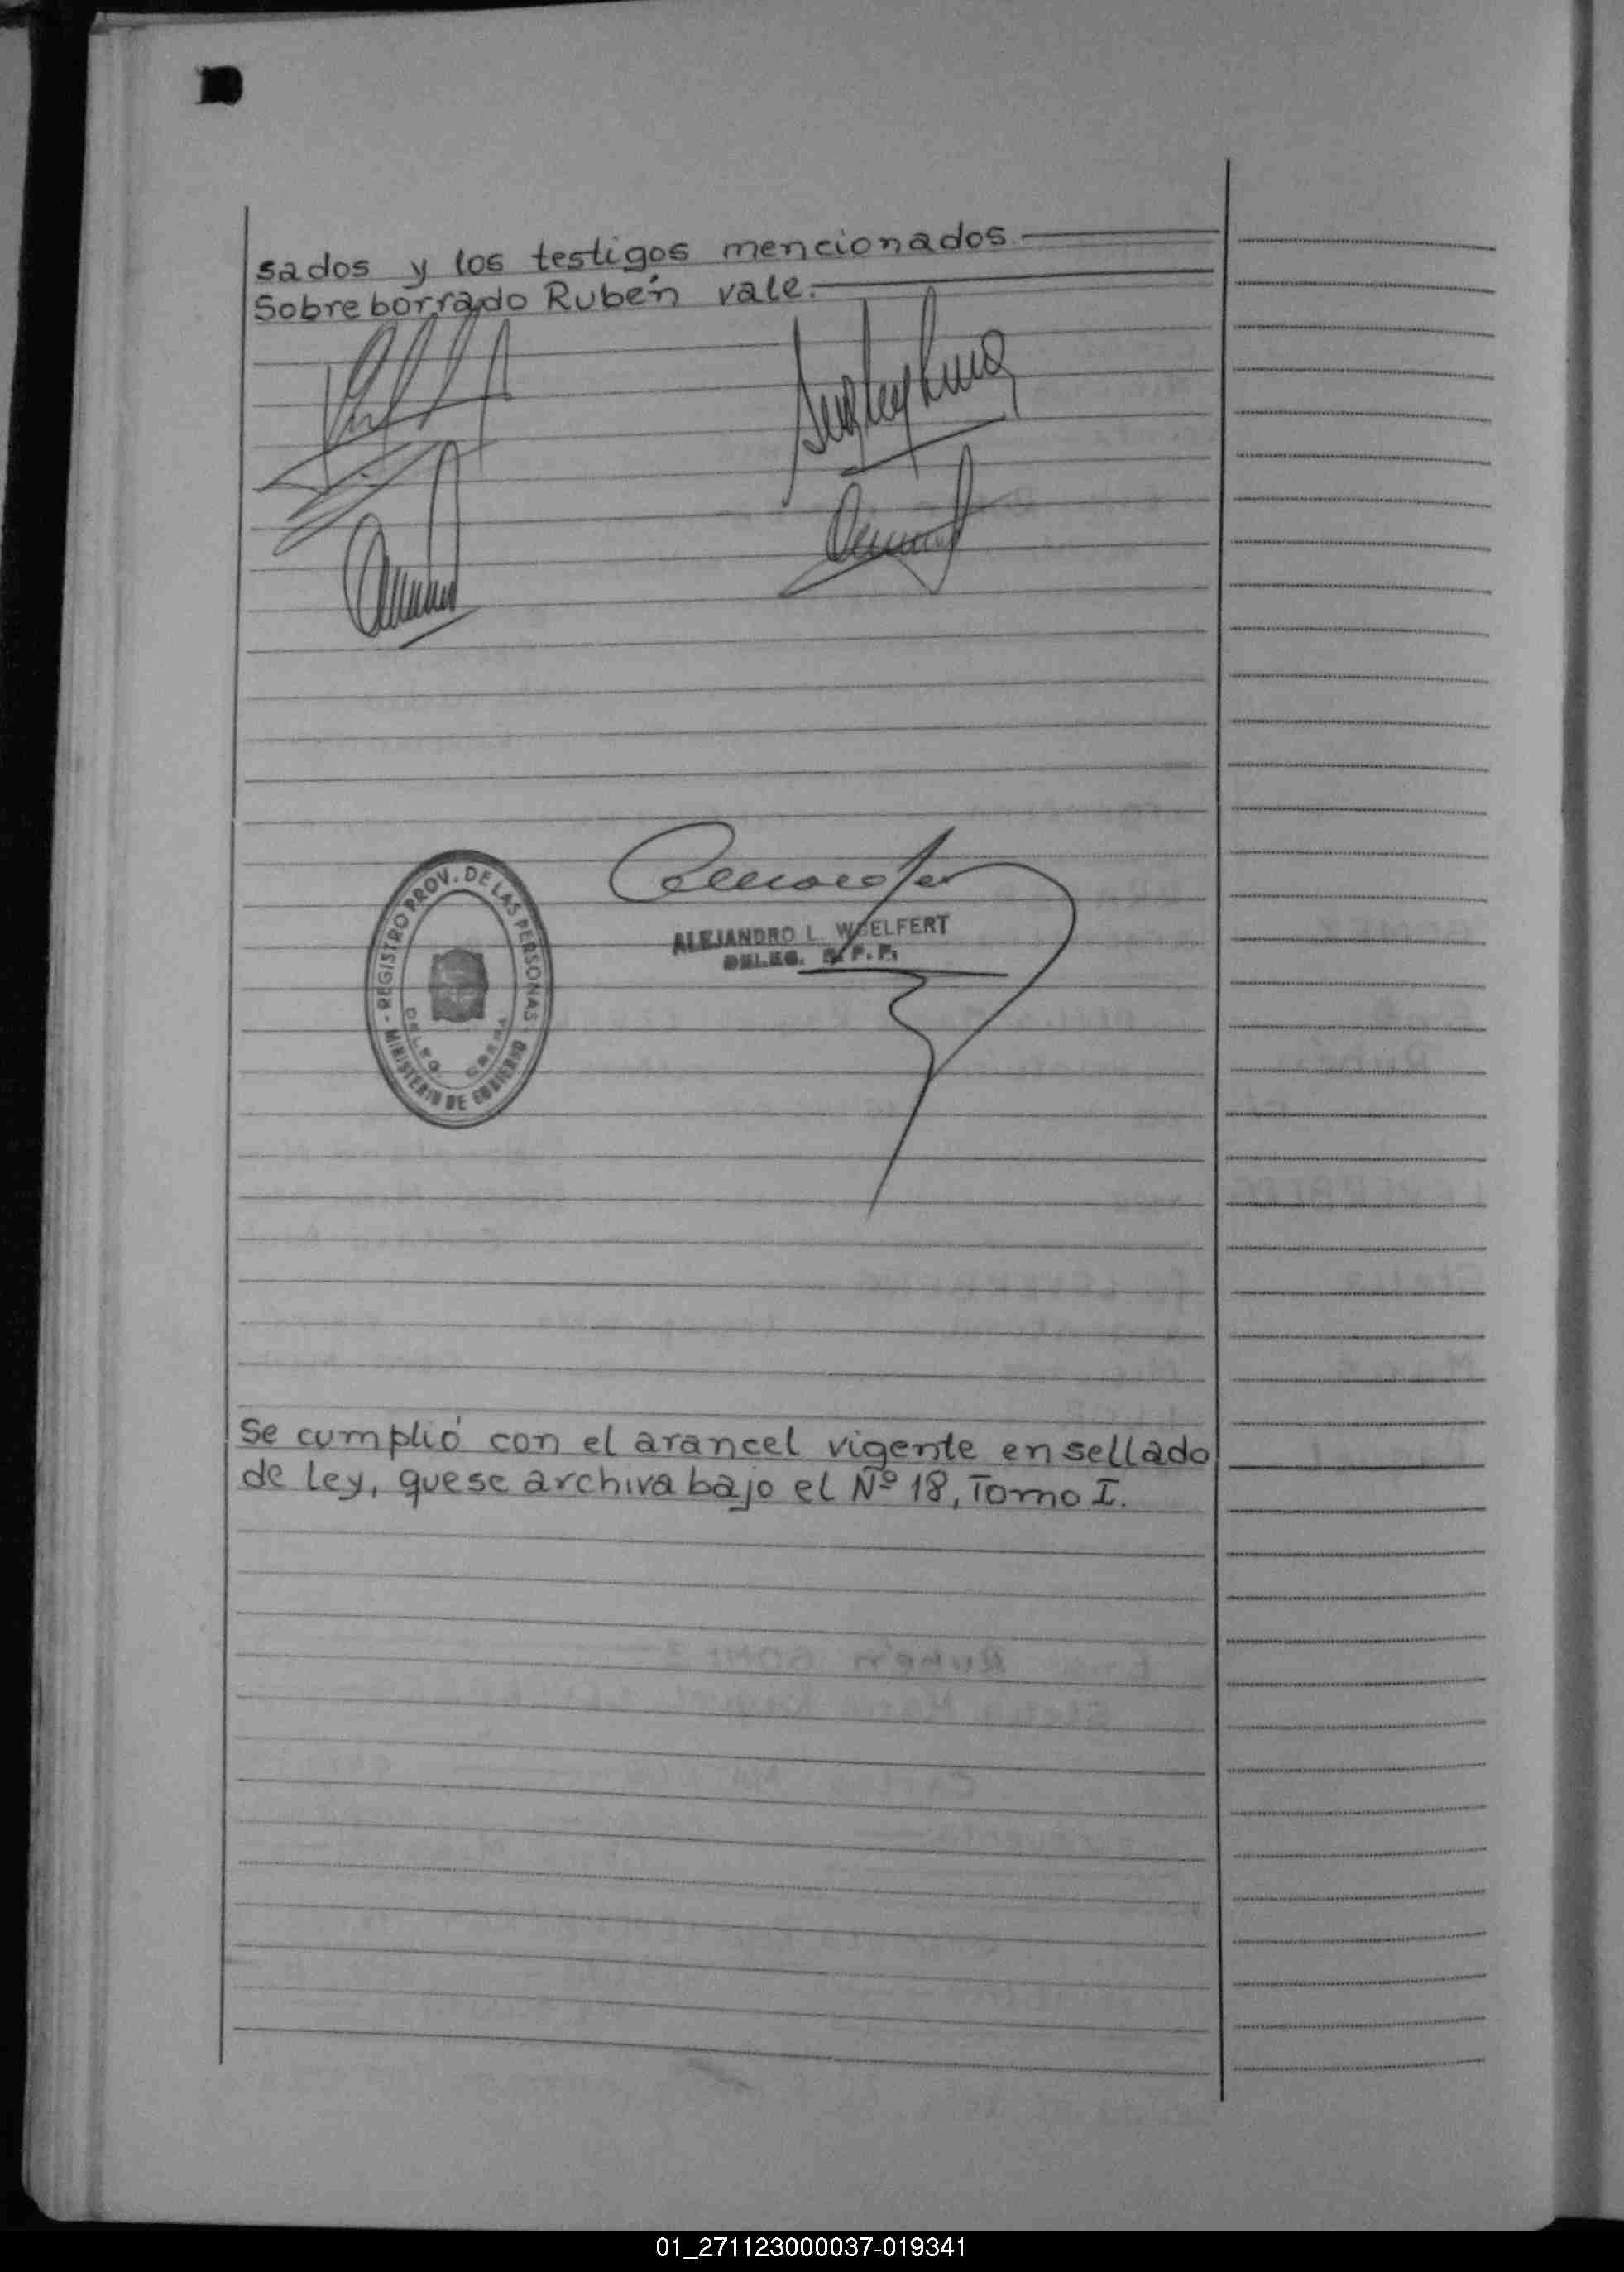 sados y los testigos mencionados.
Sobre borrado Rubén vale.
REGISTRO PROV. DE LAS PERSONAS
MINISTERIO DE GOBIERNO
DELEG.
ALEJANDRO L. WOELFERT
DELEG.
Se cumplió con el arancel vigente en sellado
de ley, que se archiva bajo el Nº 18, Tomo I.
01_271123000037-019341